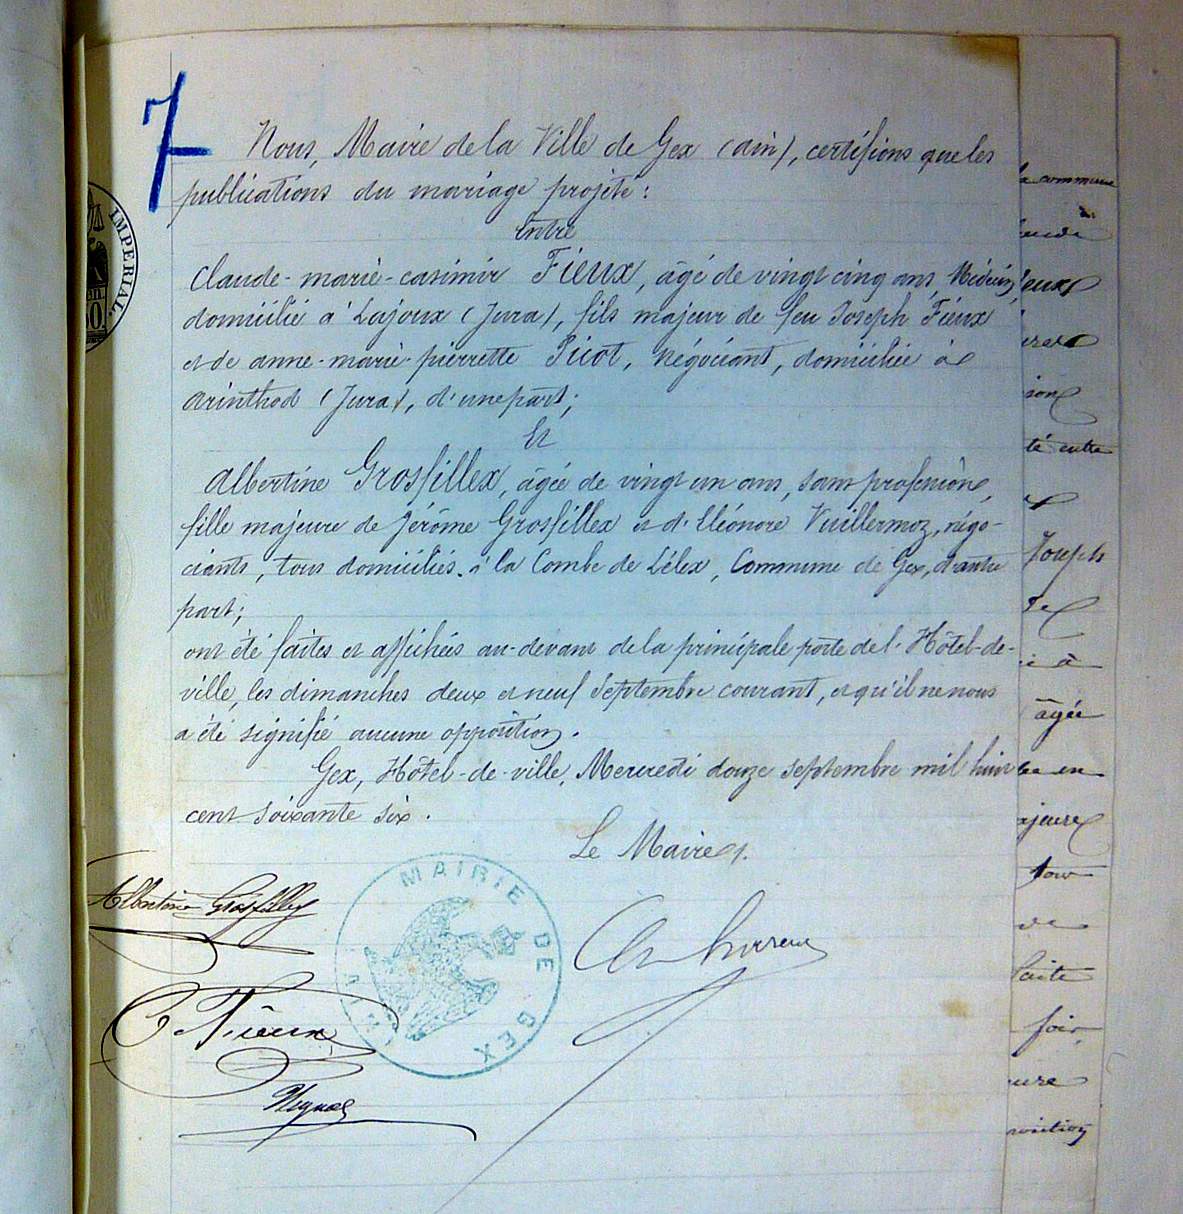 7
Nous, Maire de la Ville de Gex (ain), certifions que les
publications du mariage projeté :
Entre
Claude-marie-casimir Fieux, âgé de vingt cinq ans, Médecin,
domicilié à Lajoux (Jura), fils majeur de feu Joseph Fieux
et de anne-marie-pierrette Picot, négociant, domiciliée à
arinthod (Jura), d'une part ;
Et
albertine Grosfillex, âgée de vingt un ans, sans profession,
fille majeure de Jérôme Grosfillex et d'Eléonore Vuillermoz, négo-
ciants, tous domiciliés à la Combe de Lélex, Commune de Gex, d'autre
part ;
ont été faites et affichées au-devant de la principale porte de l'Hôtel-de-
ville, les dimanches deux et neuf Septembre courant, et qu'il ne nous
a été signifié aucune opposition.
Gex, Hôtel-de-ville, Mercredi douze septembre mil huit
cent soixante six.
Le Maire
Albertine Grosfillex
C. Fieux
MAIRIE DE GEX
AIN
IMPERIAL.
la commune
Fieux
té entre
Joseph
de
à
âgée
majeure
de
faite
foi,